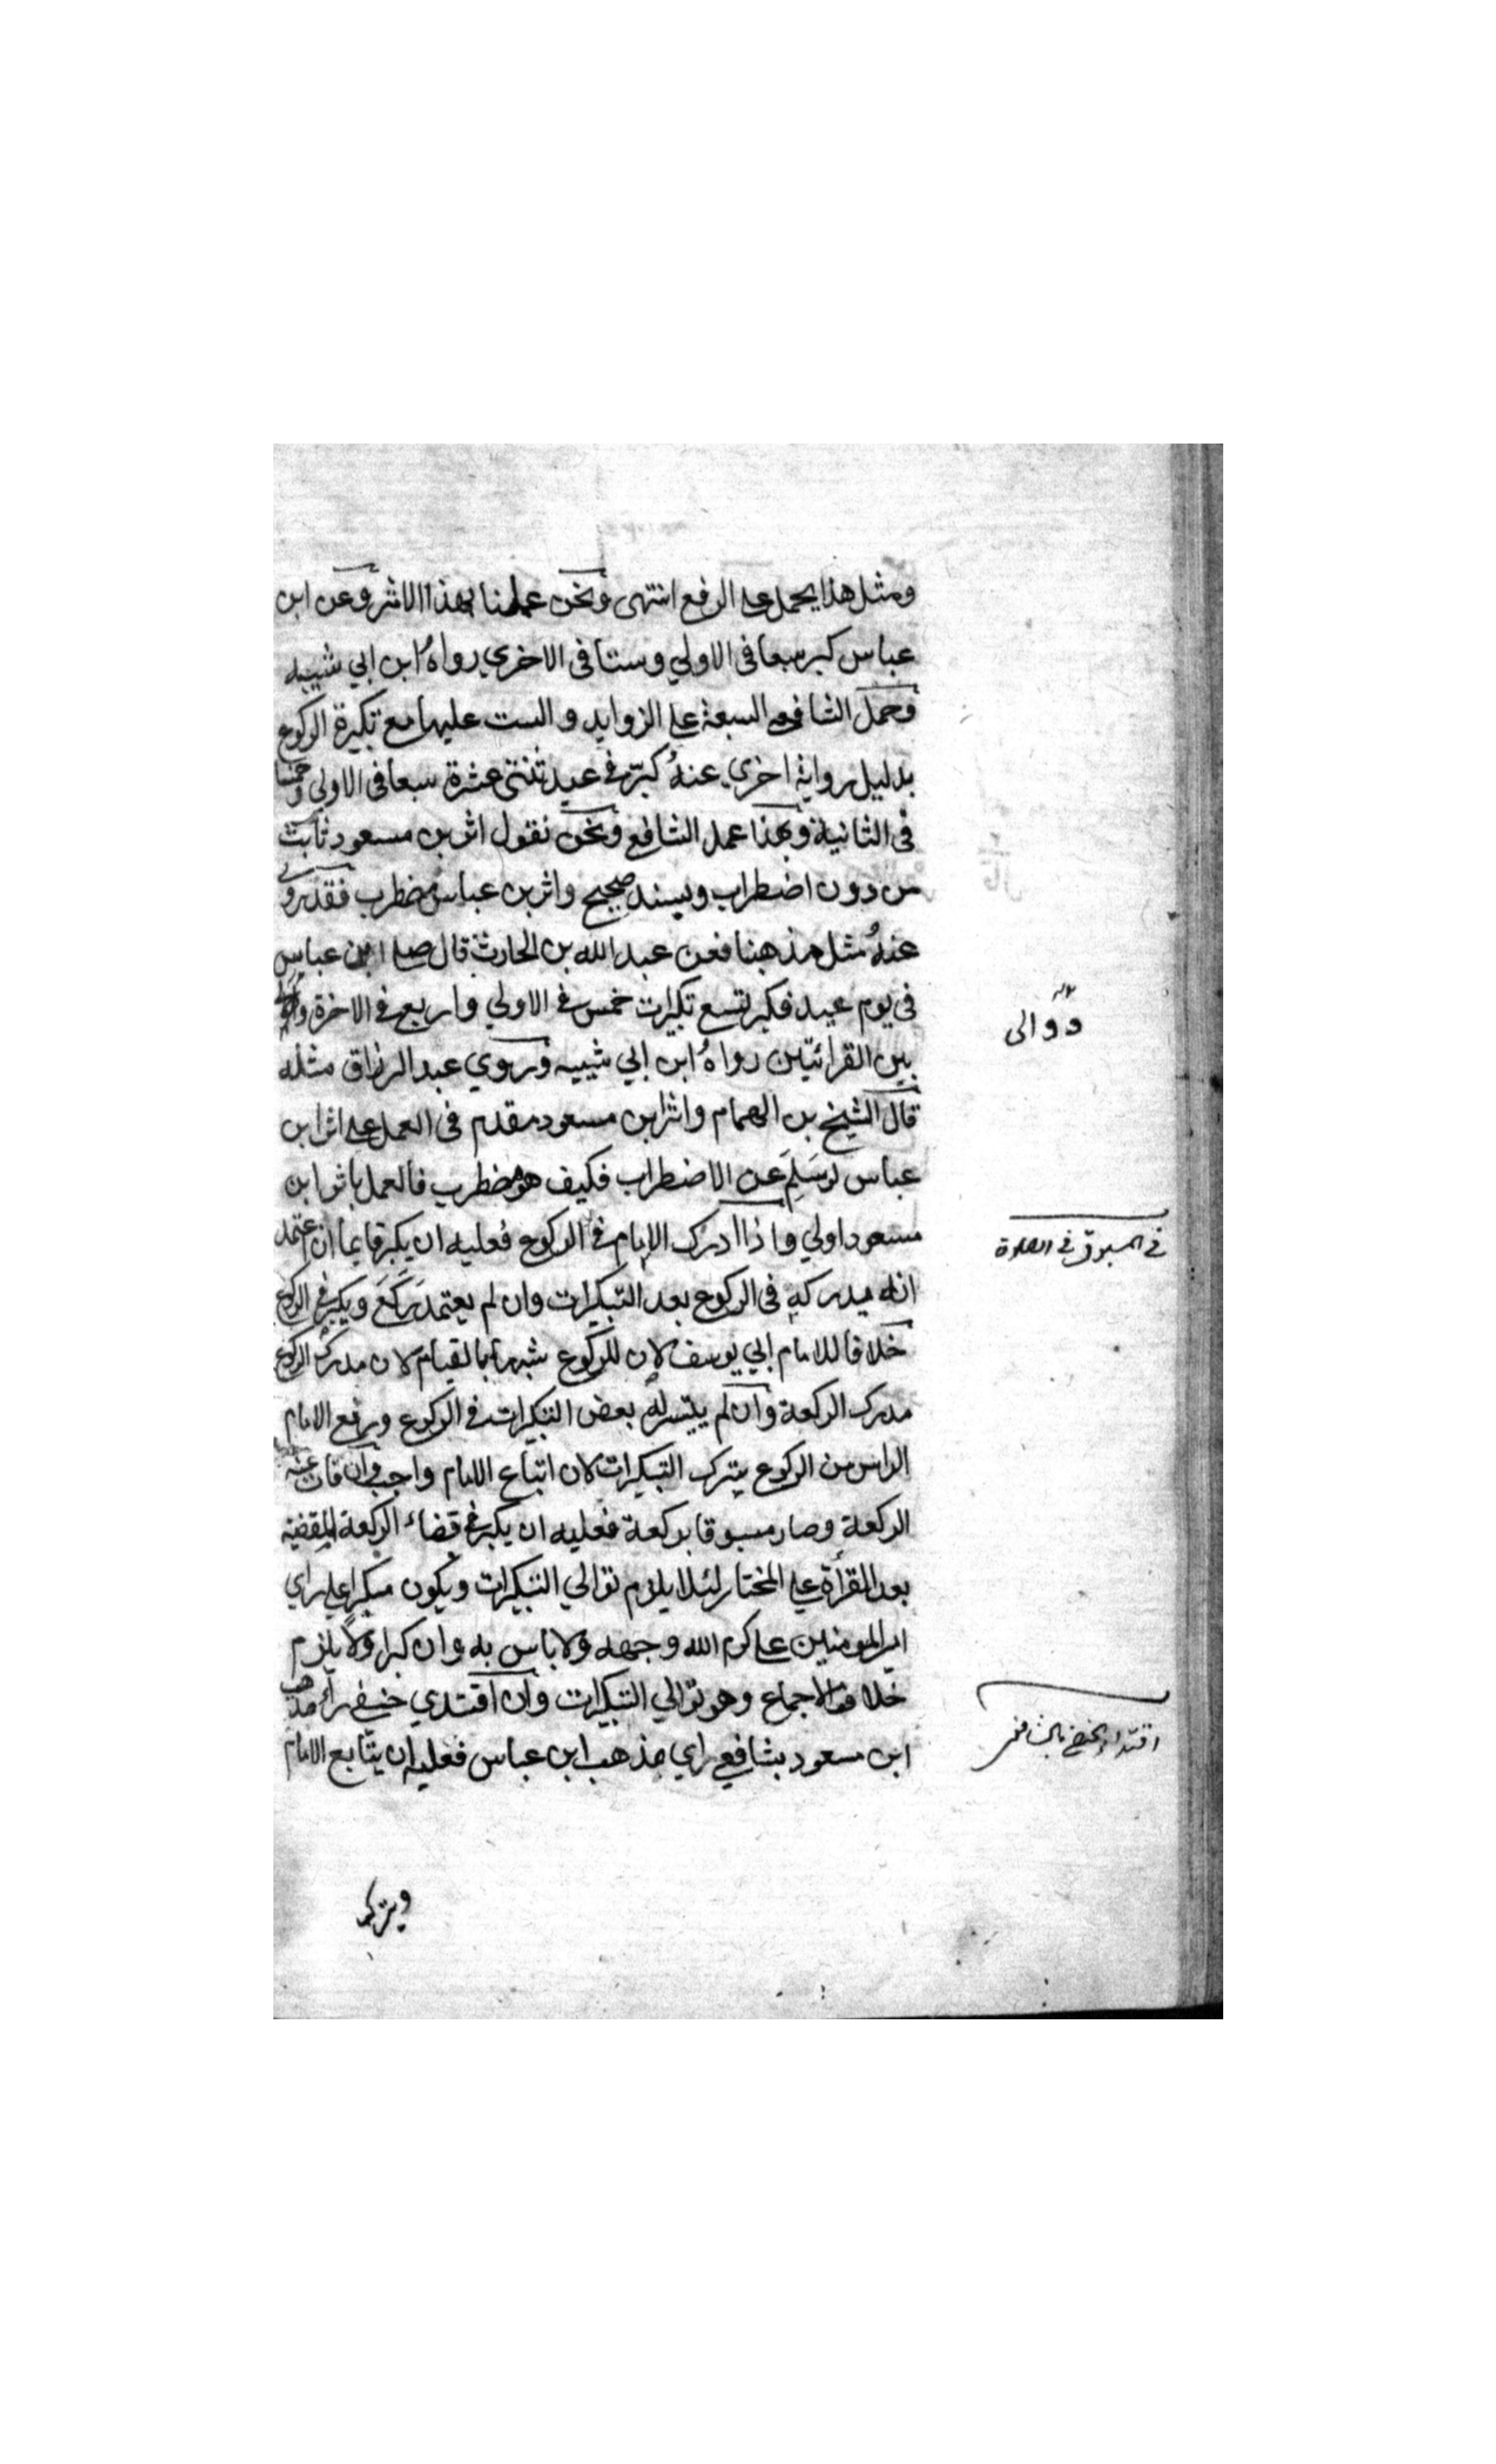 ومثل هذا يحمل على الرفع انتهى ونحن عملنا بهذا الاثر وعن ابن
عباس كبر سبعا فى الاولي وستا فى الاخري رواهُ ابن ابي شيبه
وحمل الشافعي السبعة على الزوايد والست عليها مع تكبيرة الركوع
بدليل رواية اخري عنهُ كبّر في عيد ثنتى عشرة سبعا فى الاولي وخمسا
فى الثانية وبهذا عمل الشافع ونحن نقول اثر بن مسعود ثابت
من دون اضطراب وبسند صحيح واثر بن عباس مضطرب فقد روي
عنهُ مثل مذهبنا فعن عبد الله بن الحارث قال صلى ابن عباس
فى يوم عيد فكبر تسع تكبيرات خمس في الاولي واربع في الاخرة ووالى
بين القرائتين رواهُ ابن ابي شيبه وروي عبد الرزاق مثله
قال الشيخ بن الهمام واثر ابن مسعود مقدم فى العمل على اثر ابن
عباس لو سَلِمَ عن الاضطراب فكيف هو مضطرب فالعمل باثر ابن
مسعود اولي واذا ادرك الامام في الركوع فعليه ان يكبر قايما ان اعتمد
انه يدركه فى الركوع بعد التبكيرات وان لم يعتمد رَكَعَ ويكبر في الركوع
خلافا للامام ابي يوسف لان للركوع شبها بالقيام لان مدرك الركوع
مدرك الركعة وان لم يتيسر له بعض التبكيرات في الركوع ورفع الامام
الراس من الركوع يترك التبكيرات لان اتباع الامام واجب وان فات عنه
الركعة وصار مسبوقا بركعة فعليه ان يكبر في قضاء الركعة المقضية
بعد القرأة على المختار لئلا يلزم توالي التبكيرات ويكون مبكرا على راي
امير المومنين على كرم الله وجهه ولا باس به وان كبر اولا يلزم
خلاف الاجماع وهو توالي التبكيرات وان اقتدي حنفي راى مذهب
ابن مسعود بشافعي راي مذهب ابن عباس فعليه ان يتابع الامام
ويترك
ووالى
في المسبوق في الصلاة
اقتداء الحنفي بالشافعي